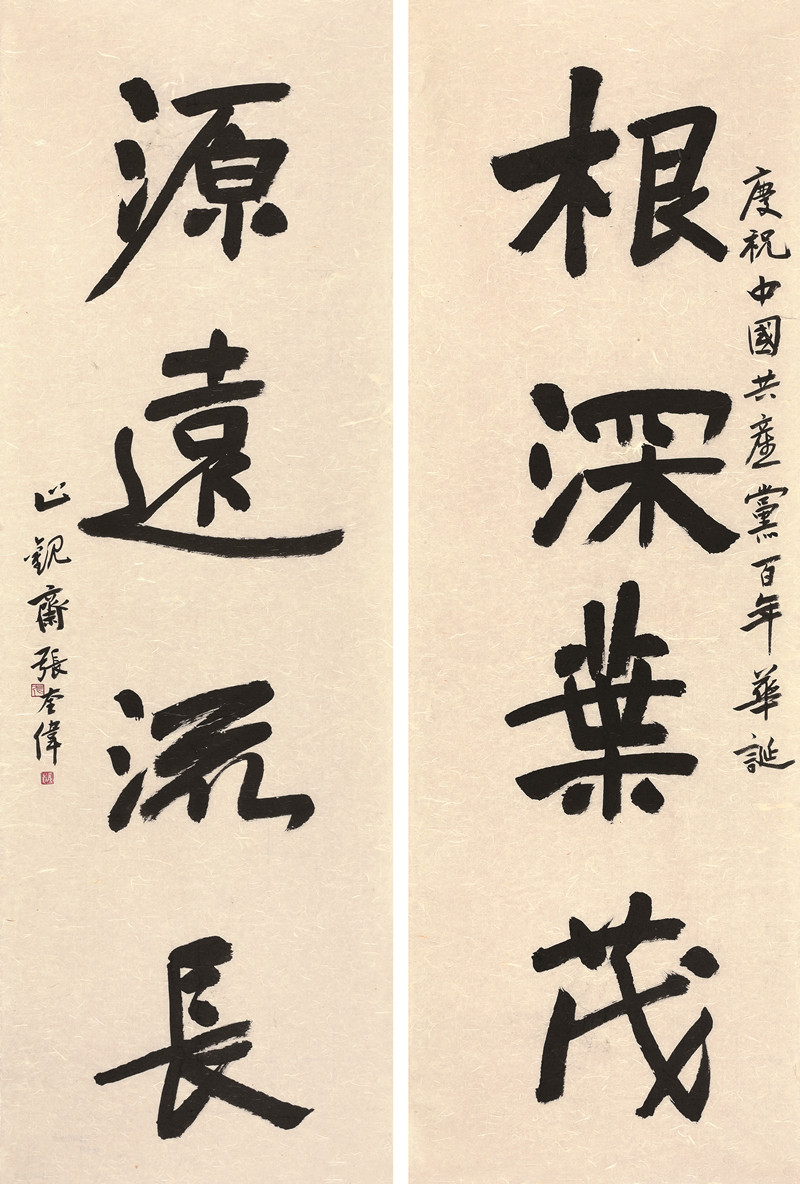 慶祝中國共產黨百年華誕
根深葉茂
源遠流長
觀齋張奎偉